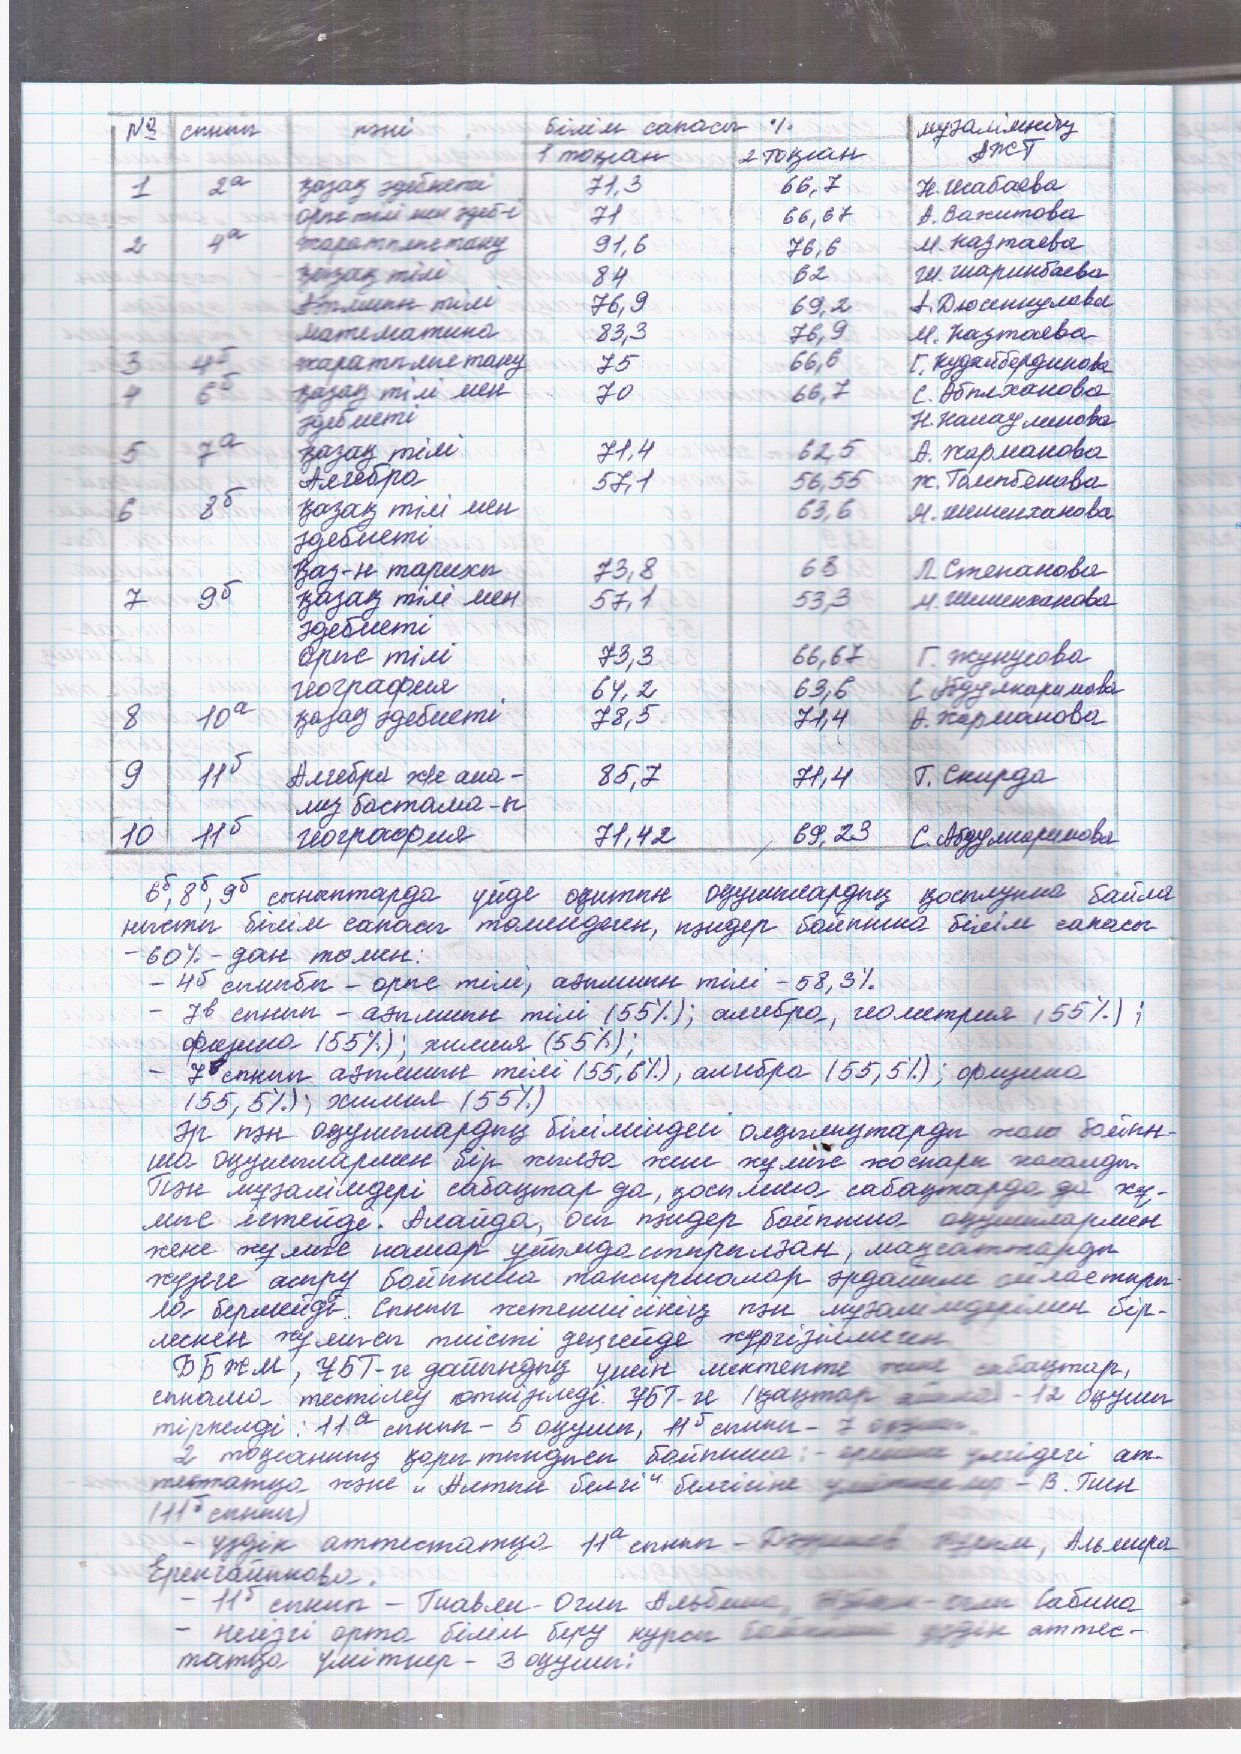 № сынып пәні білім сапасы % мұғалімнің
1 тоқсан 2 тоқсан АЖТ
1 2а қазақ әдебиеті 71,3 66,7 Н. Жабаева
орыс тілі мен әдеб-і 71 66,67 А. Вахитова
2 4а жаратылыстану 91,6 76,6 М. Казтаева
қазақ тілі 84 62 Ш. Шаринбаева
Ағылшын тілі 76,9 69,2 А. Дюсенкулова
математика 83,3 76,9 М. Казтаева
3 4б жаратылыстану 75 66,6 Г. Кудайбердинова
4 6б қазақ тілі мен 70 66,7 С. Абылханова
әдебиеті Н.
5 7а қазақ тілі 71,4 62,5 А. Жарманова
Алгебра 57,1 56,55 Ж.
6 8б қазақ тілі мен 63,6 М. Шишенханова
әдебиеті
Қаз-н тарихы 73,8 68 Л. Степанова
7 9б қазақ тілі мен 57,1 53,3 М. Шишенханова
әдебиеті
орыс тілі 73,3 66,67 Г. Жунусова
география 64,2 63,6 С. Абдулкаримова
8 10а қазақ әдебиеті 78,5 71,4 А. Жарманова
9 11б Алгебра ж/е ана-
лиз бастама-ы 85,7 71,4 Г. Скирда
10 11б география 71,42 69,23 С. Абдулкаримова
6б, 8б, 9б сыныптарда үйде оқитын оқушылардың қосылуына байла
нысты білім сапасы төмендеген, пәндер бойынша білім сапасы
- 60% - дан төмен:
- 4б сыныбы - орыс тілі, ағылшын тілі - 58,3%.
- 7в сынып - ағылшын тілі (55%); алгебра, геометрия (55%);
физика (55%); химия (55%);
- 7 сынып ағылшын тілі (55,6%), алгебра (55,5%); физика
(55,5%); химия (55%)
Әр пән оқушылардың біліміндегі олқылықтарды жою бойын-
ша оқушылармен бір жылға жеке жұмыс жоспары жасалды.
Пән мұғалімдері сабақтар да, қосымша сабақтарда да жұ-
мыс істейде. Алайда, осы пәндер бойынша оқушылармен
жеке жұмыс нашар ұйымдастырылған, мақсаттарды
жүзеге асыру бойынша тапсырмалар әрдайым ойластыры-
ла бермейді. Сынып жетекшісінің пән мұғалімдерімен бір-
лескен жұмысы тиісті деңгейде жүргізілмеген
ББЖМ, ҰБТ-ге дайындық үшін мектепте жеке сабақтар,
сынама тестілеу өткізіледі. ҰБТ-ге (қаңтар айына) - 12 оқушы
тіркелді: 11а сынып - 5 оқушы, 11б сынып - 7 оқушы.
2 тоқсанның қорытындысы бойынша: - ерекше үлгідегі ат-
тестатқа және „Алтын белгі" белгісіне үміткерлер - В. Тен
(11б сынып)
- үздік аттестатқа 11а сынып - Альмира
Еренгайыпова.
- 11б сынып - Альбина, Сабина
- негізгі орта білім беру курсы бойынша үздік аттес-
татқа үміткер - 3 оқушы: